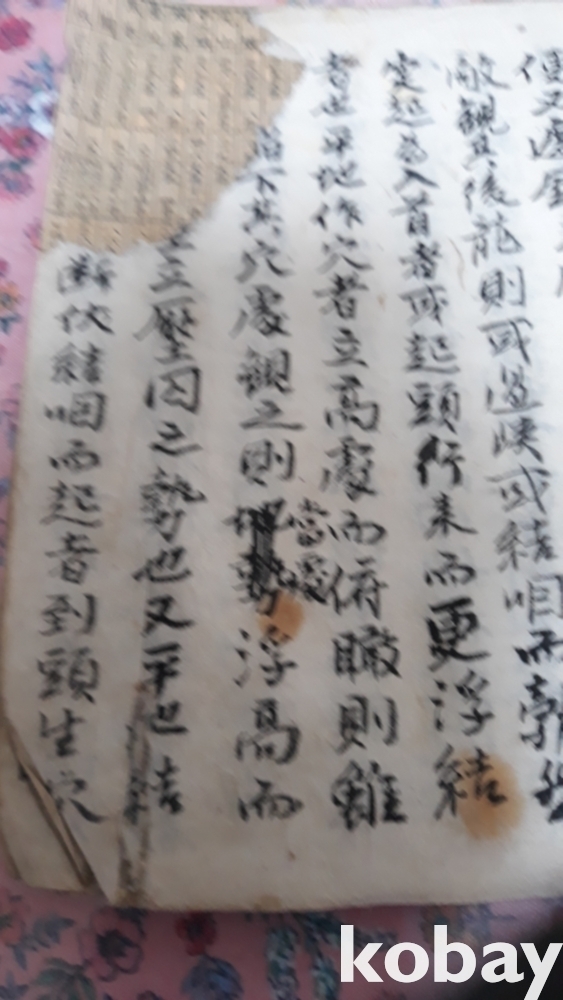 便又處
敵観其後龍則或過峽或結咽而
定起爲入首者或起頭行来而更浮結
者也平地作穴者立高處而俯瞰則雖
當處
下其穴處観之則地勢浮高而
立壓囚之勢也又平地結
断伏結咽而起者到頭生穴
kobay